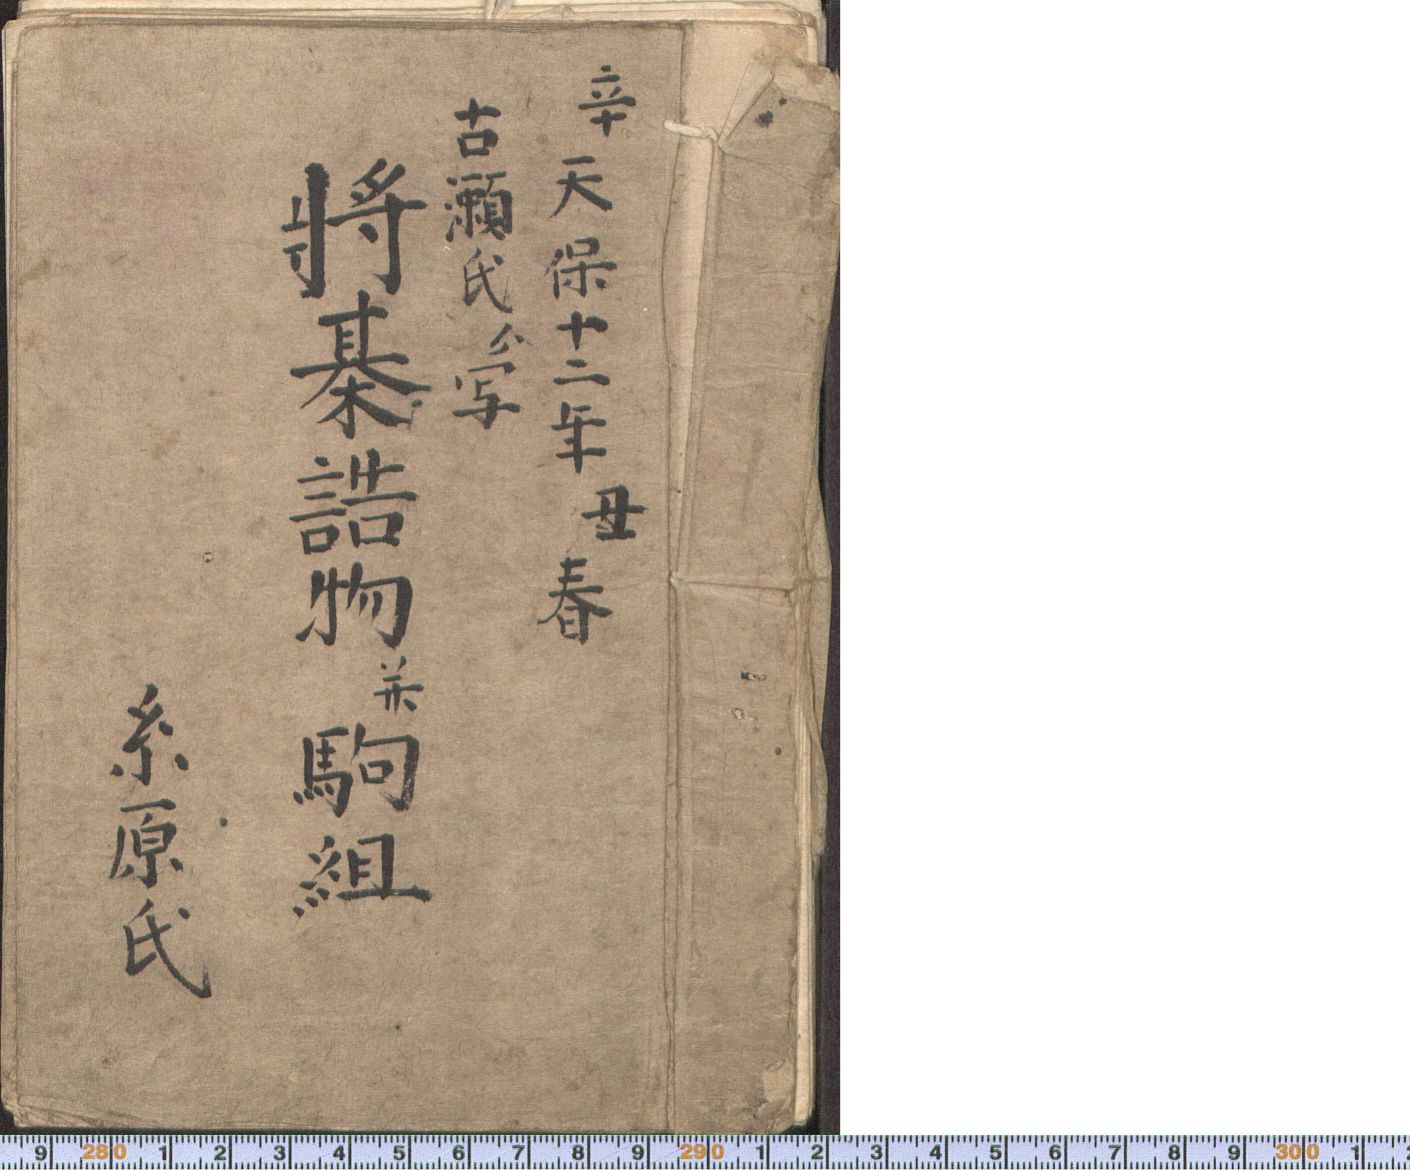 辛
天保十二年
丑
春
古瀬氏ゟ写
將棊誥物并駒組
糸原氏
9 280 1 2 3 4 5 6 7 8 9 290 1 2 3 4 5 6 7 8 9 300 1 2